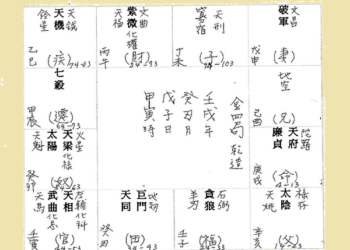 鈴星 天機 天鉞
乙巳 (疾) 74-83
天福 紫微 化權 文曲
丙午 (財) 84-93
天刑
丁未 (子)
破軍 文昌
戊申 (妻)
七殺
甲辰 (遷) 64-73
壬戌年
癸丑月
戊子日
甲寅時
金四局
乾造
地空
己酉 (兄)
天魁 太陽 天梁 化祿 火星
癸卯 (奴)
廉貞 天府 陀羅
庚戌 (命) 4-13
天馬 武曲 化忌 天相 左輔 化科
壬寅 (官)
天同 巨門 地劫
癸丑 (田)
羊刃 貪狼 右弼
壬子 (福)
天姚 太陰 祿存
辛亥 (父)